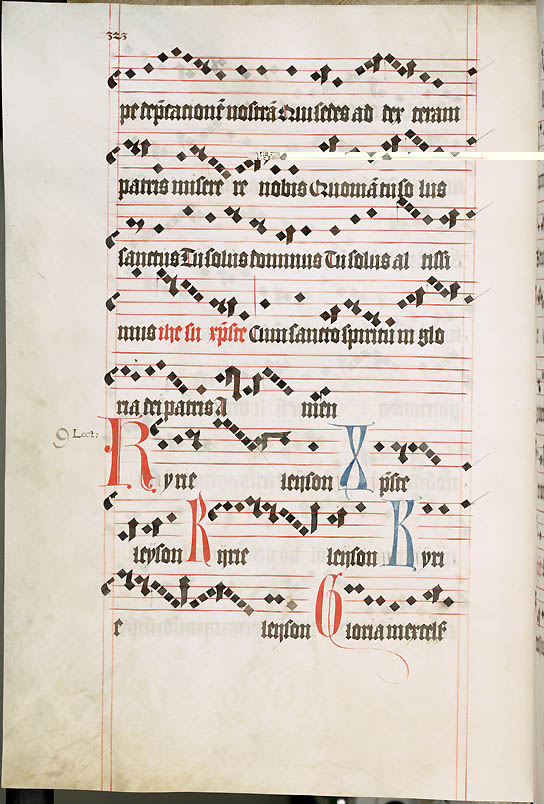 323
pe dep̄cationē nostrā Qui sedes ad dex teram
patris misere re nobis Quoniā tu so lus
sanctus Tu solus dominus Tu solus al tissi
mus ihe su xp̄ste Cum sancto spiritu in glo
ria dei patris A mēn
9 Lect:
Kyrie leyson Xp̄ste
leyson Kyrie leyson Kyri
e leyson Gloria in excels̄